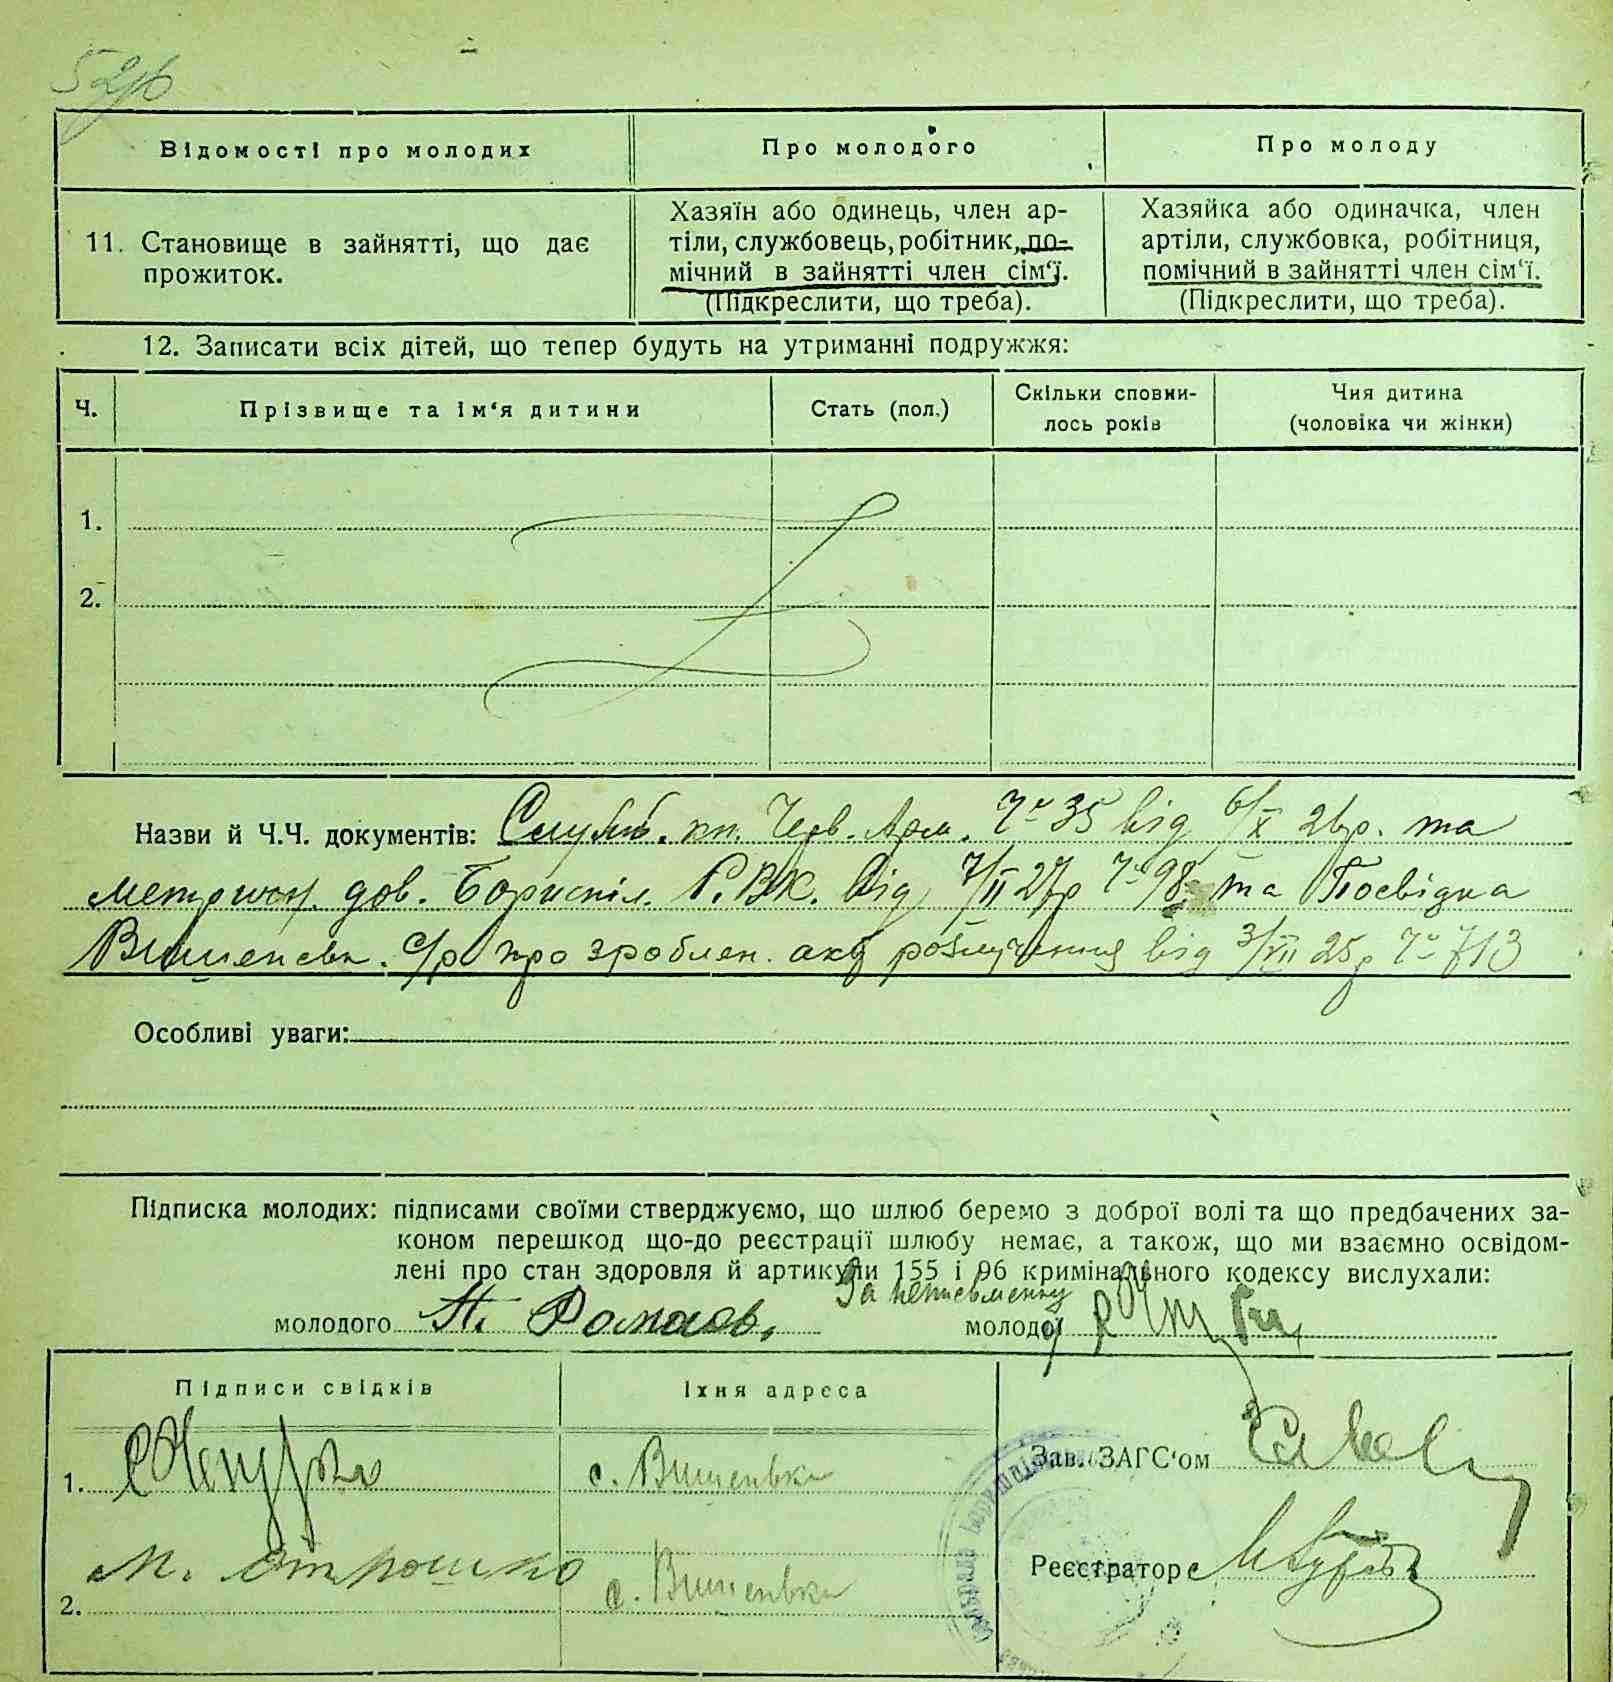 52зв
Відомості про молодих
Про молодого
Про молоду
11. Становище в зайнятті, що дає
прожиток.
Хазяїн або одинець, член ар-
тіли, службовець, робітник, по-
мічний в зайнятті член сім‘ї.
(Підкреслити, що треба).
Хазяйка або одиначка, член
артіли, службовка, робітниця,
помічний в зайнятті член сім‘ї.
(Підкреслити, що треба).
12. Записати всіх дітей, що тепер будуть на утриманні подружжя:
Ч.
Прізвище та ім‘я дитини
Стать (пол.)
Скільки сповни-
лось років
Чия дитина
(чоловіка чи жінки)
1.
2.
Назви й Ч.Ч. документів: Служб. кн. Черв. Арм. Ч 35 від 6/X 26р. та
метричн. дов. Бориспіл. Р.В.К. від 7/II 27р Ч 98 та Посвідка
Вишеньк. с/р про зроблен. акт розлучення від 3/VII 25р Ч 713
Особливі уваги:
Підписка молодих: підписами своїми стверджуємо, що шлюб беремо з доброї волі та що предбачених за-
коном перешкод що-до реєстрації шлюбу немає, а також, що ми взаємно освідом-
лені про стан здоровля й артикули 155 і 96 кримінального кодексу вислухали:
За неписьменну
молодого П. Ромаов.
молодої
Підписи свідків
Їхня адреса
1.
с. Вишеньки
Зав. ЗАГС‘ом
2. М. Ятрошко
с. Вишеньки
Реєстратор